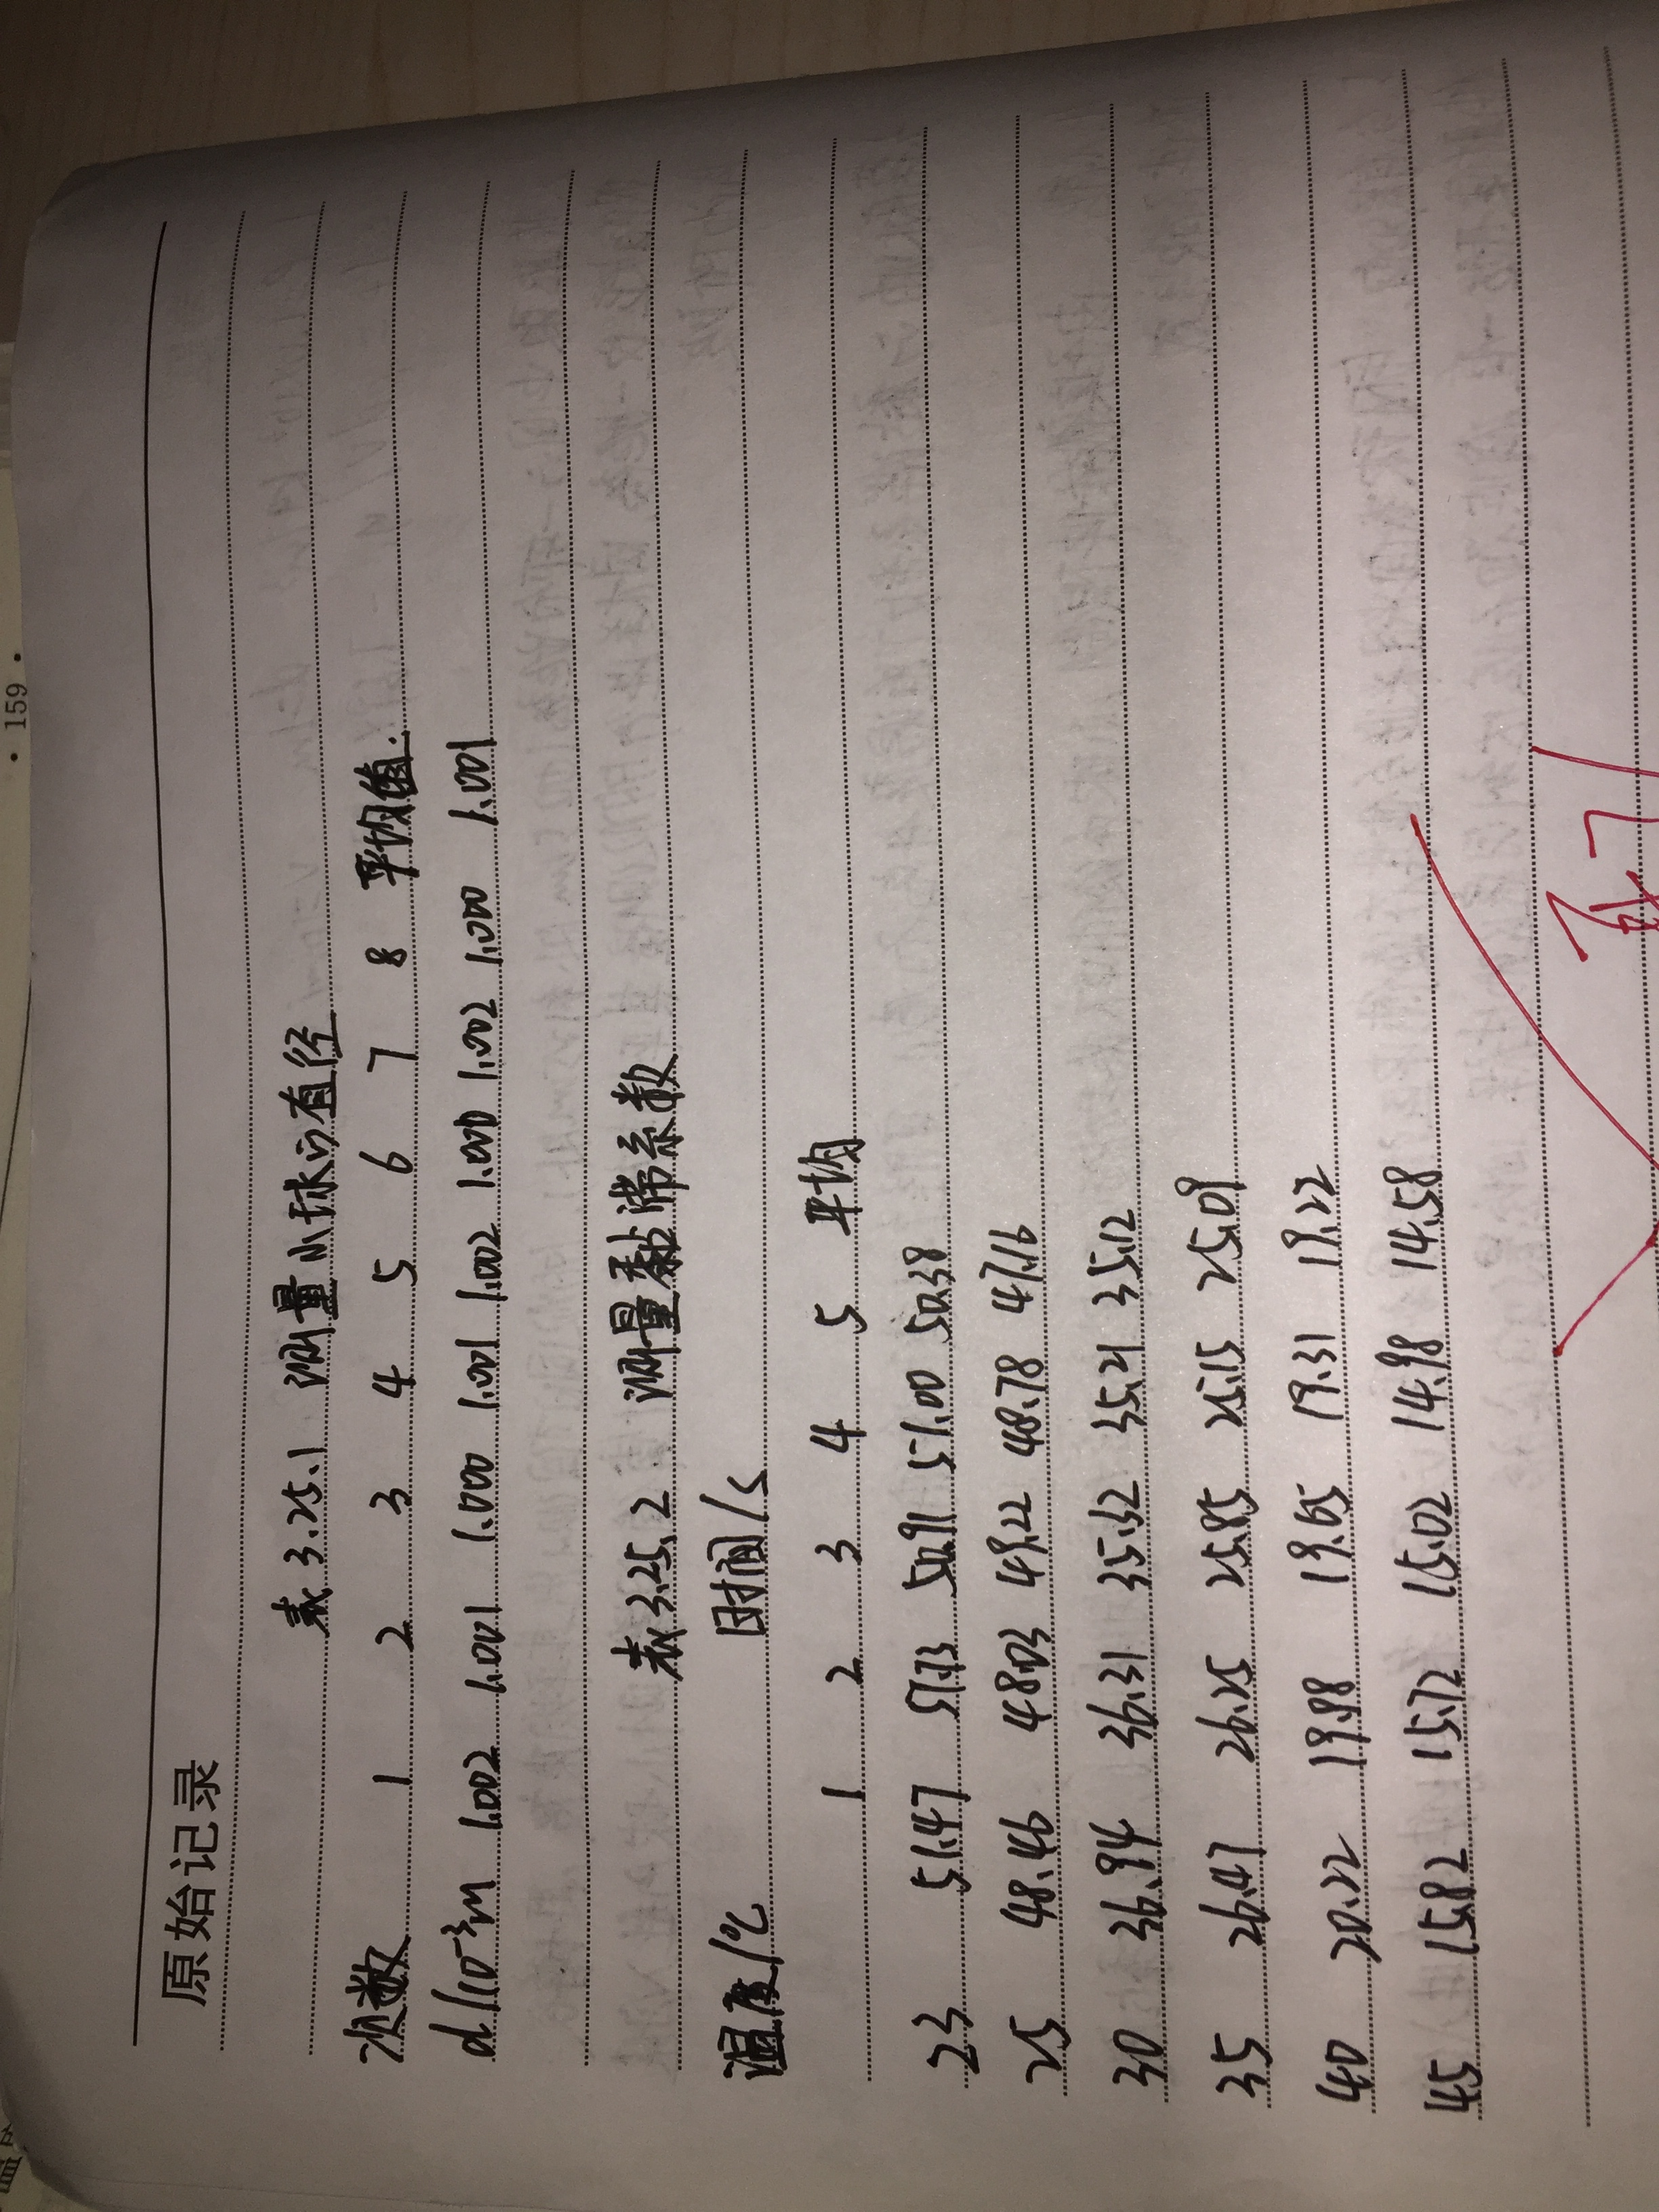 · 159 ·
原始记录
表 3.25.1 测量小球的直径
次数 1 2 3 4 5 6 7 8 平均值.
d/10⁻³m 1.002 1.001 1.000 1.001 1.002 1.000 1.002 1.000 1.001
表 3.25.2 测量黏滞系数
温度/℃ 时间/s
1 2 3 4 5 平均
23 51.47 51.13 50.91 51.00 50.38
25 48.46 48.03 49.22 48.78 47.16
30 36.94 36.31 35.32 35.21 35.12
35 26.47 26.25 25.85 25.15 25.09
40 20.22 19.88 19.65 19.31 19.22
45 15.82 15.72 15.02 14.98 14.58